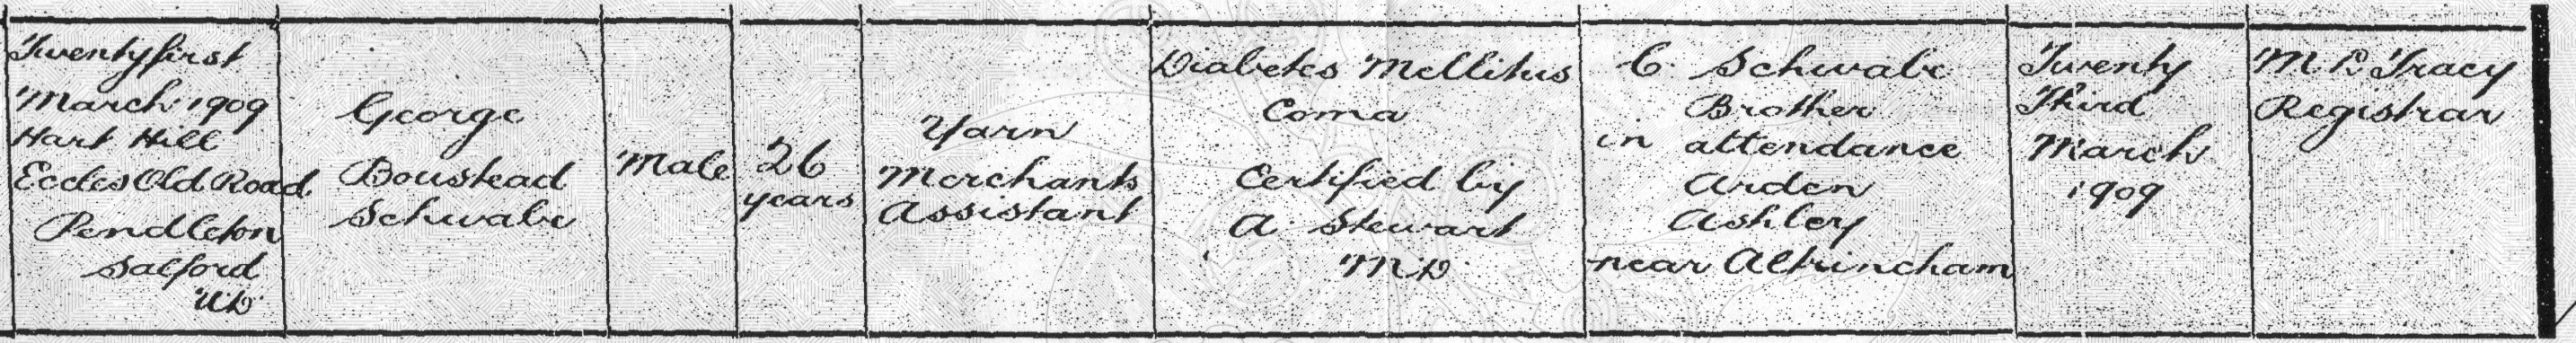 Twentyfirst
March 1909
Hart Hill
Eccles Old Road
Pendleton
Salford
U.D.
George
Boustead
Schwabe
Male
26
years
Yarn
Merchants
Assistant
Diabetes Mellitus
Coma
Certified by
A Stewart
M.D.
C Schwabe
Brother
in attendance
Arden
Ashley
near Altrincham
Twenty
Third
March
1909
Tracy
Registrar